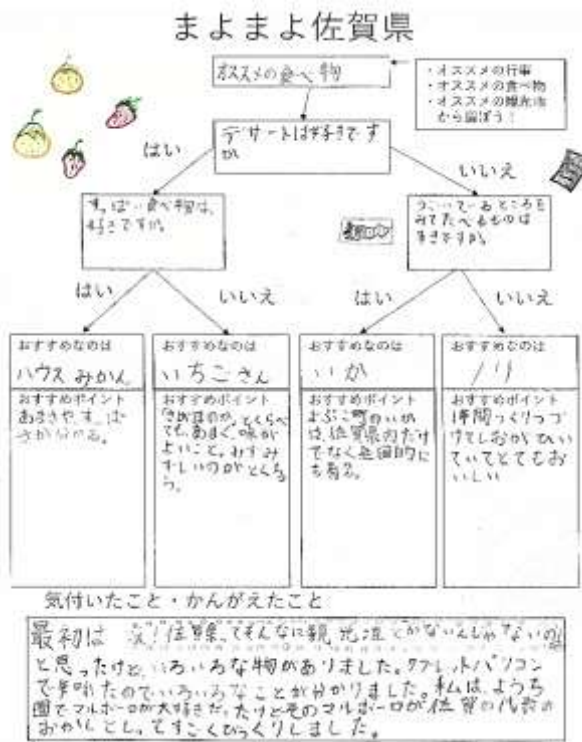 まよまよ佐賀県
オススメの食べ物
・オススメの行事
・オススメの食べ物
・オススメの観光地
から選ぼう！
デザートは好きです
か
はい
いいえ
すっぱい食べ物は、
好きですか。
うごいているところを
みてたべるものは
すきですか。
はい
いいえ
はい
いいえ
おすすめなのは
ハウスみかん
おすすめなのは
いちごさん
おすすめなのは
いか
おすすめなのは
ノリ
おすすめポイント
あまさや、すっぱ
さが分かる。
おすすめポイント
とくらべ
ても、あまく、味が
よいこと。みずみ
ずしいのがとくちょ
う。
おすすめポイント
よぶこ町のいか
は、佐賀県内だけ
でなく全国的に
も有名。
おすすめポイント
つくりつづ
けてしおが
ていてとてもお
いしい
気付いたこと・かんがえたこと
最初は 佐賀県ってそんなに観光地とかないんじゃないの
と思ったけど、いろいろな物がありました。タブレットパソコン
で いろいろなことが分かりました。私は、ようち
園でマルボーロが大好きだったけどそのマルボーロが佐賀の代表の
おかしとしってすごくびっくりしました。